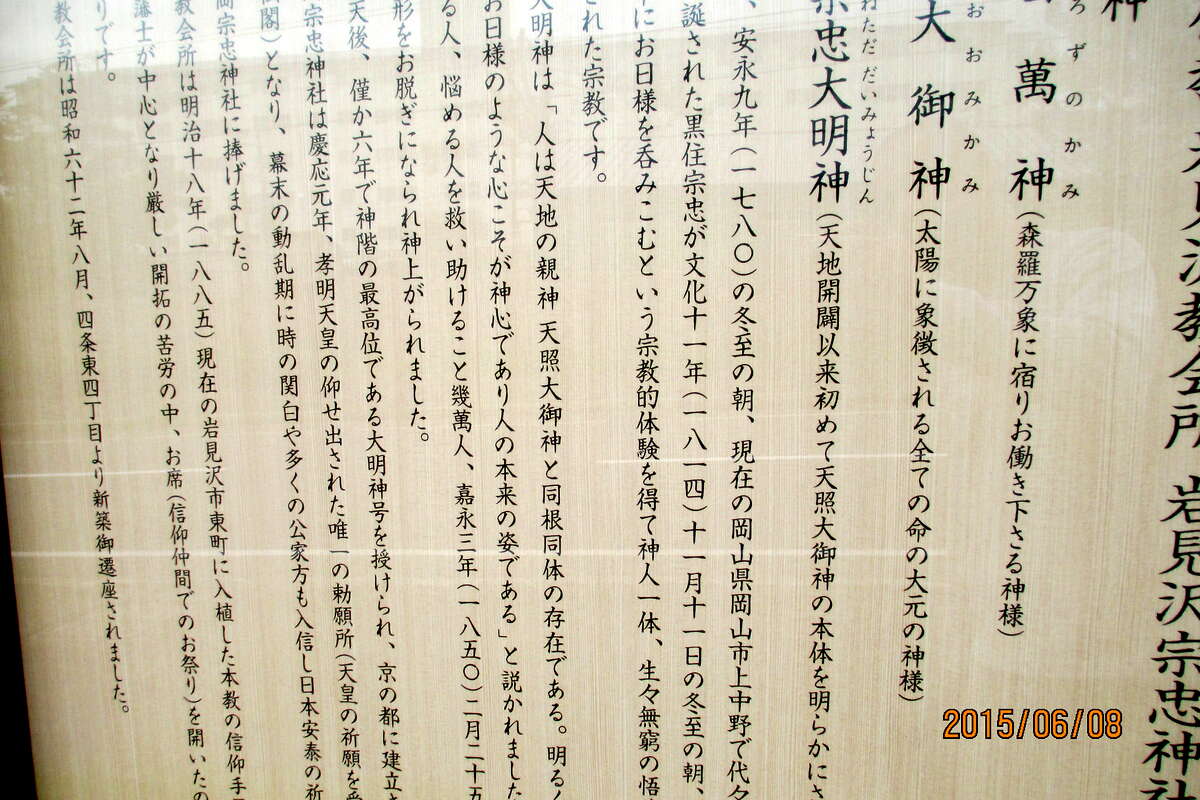 教会所 岩見沢宗忠神社
神
萬神
ろずのかみ
(森羅万象に宿りお働き下さる神様)
大御神
おおみかみ
(太陽に象徴される全ての命の大元の神様)
宗忠大明神
ねただ だいみょうじん
(天地開闢以来初めて天照大御神の本体を明らかにさ
、安永九年(一七八〇)の冬至の朝、現在の岡山県岡山市上中野で代々
誕された黒住宗忠が文化十一年(一八一四)十一月十一日の冬至の朝、
にお日様を呑みこむという宗教的体験を得て神人一体、生々無窮の悟
された宗教です。
大明神は「人は天地の親神 天照大御神と同根同体の存在である。明るく
お日様のような心こそが神心であり人の本来の姿である」と説かれました
る人、悩める人を救い助けること幾萬人、嘉永三年(一八五〇)二月二十五
形をお脱ぎになられ神上がられました。
天後、僅か六年で神階の最高位である大明神号を授けられ、京の都に建立さ
宗忠神社は慶応元年、孝明天皇の仰せ出された唯一の勅願所(天皇の祈願を
閣)となり、幕末の動乱期に時の関白や多くの公家方も入信し日本安泰の祈
岡宗忠神社に捧げました。
教会所は明治十八年(一八八五)現在の岩見沢市東町に入植した本教の信仰手
藩士が中心となり厳しい開拓の苦労の中、お席(信仰仲間でのお祭り)を開いたの
りです。
教会所は昭和六十二年八月、四条東四丁目より新築御遷座されました。
2015/06/08